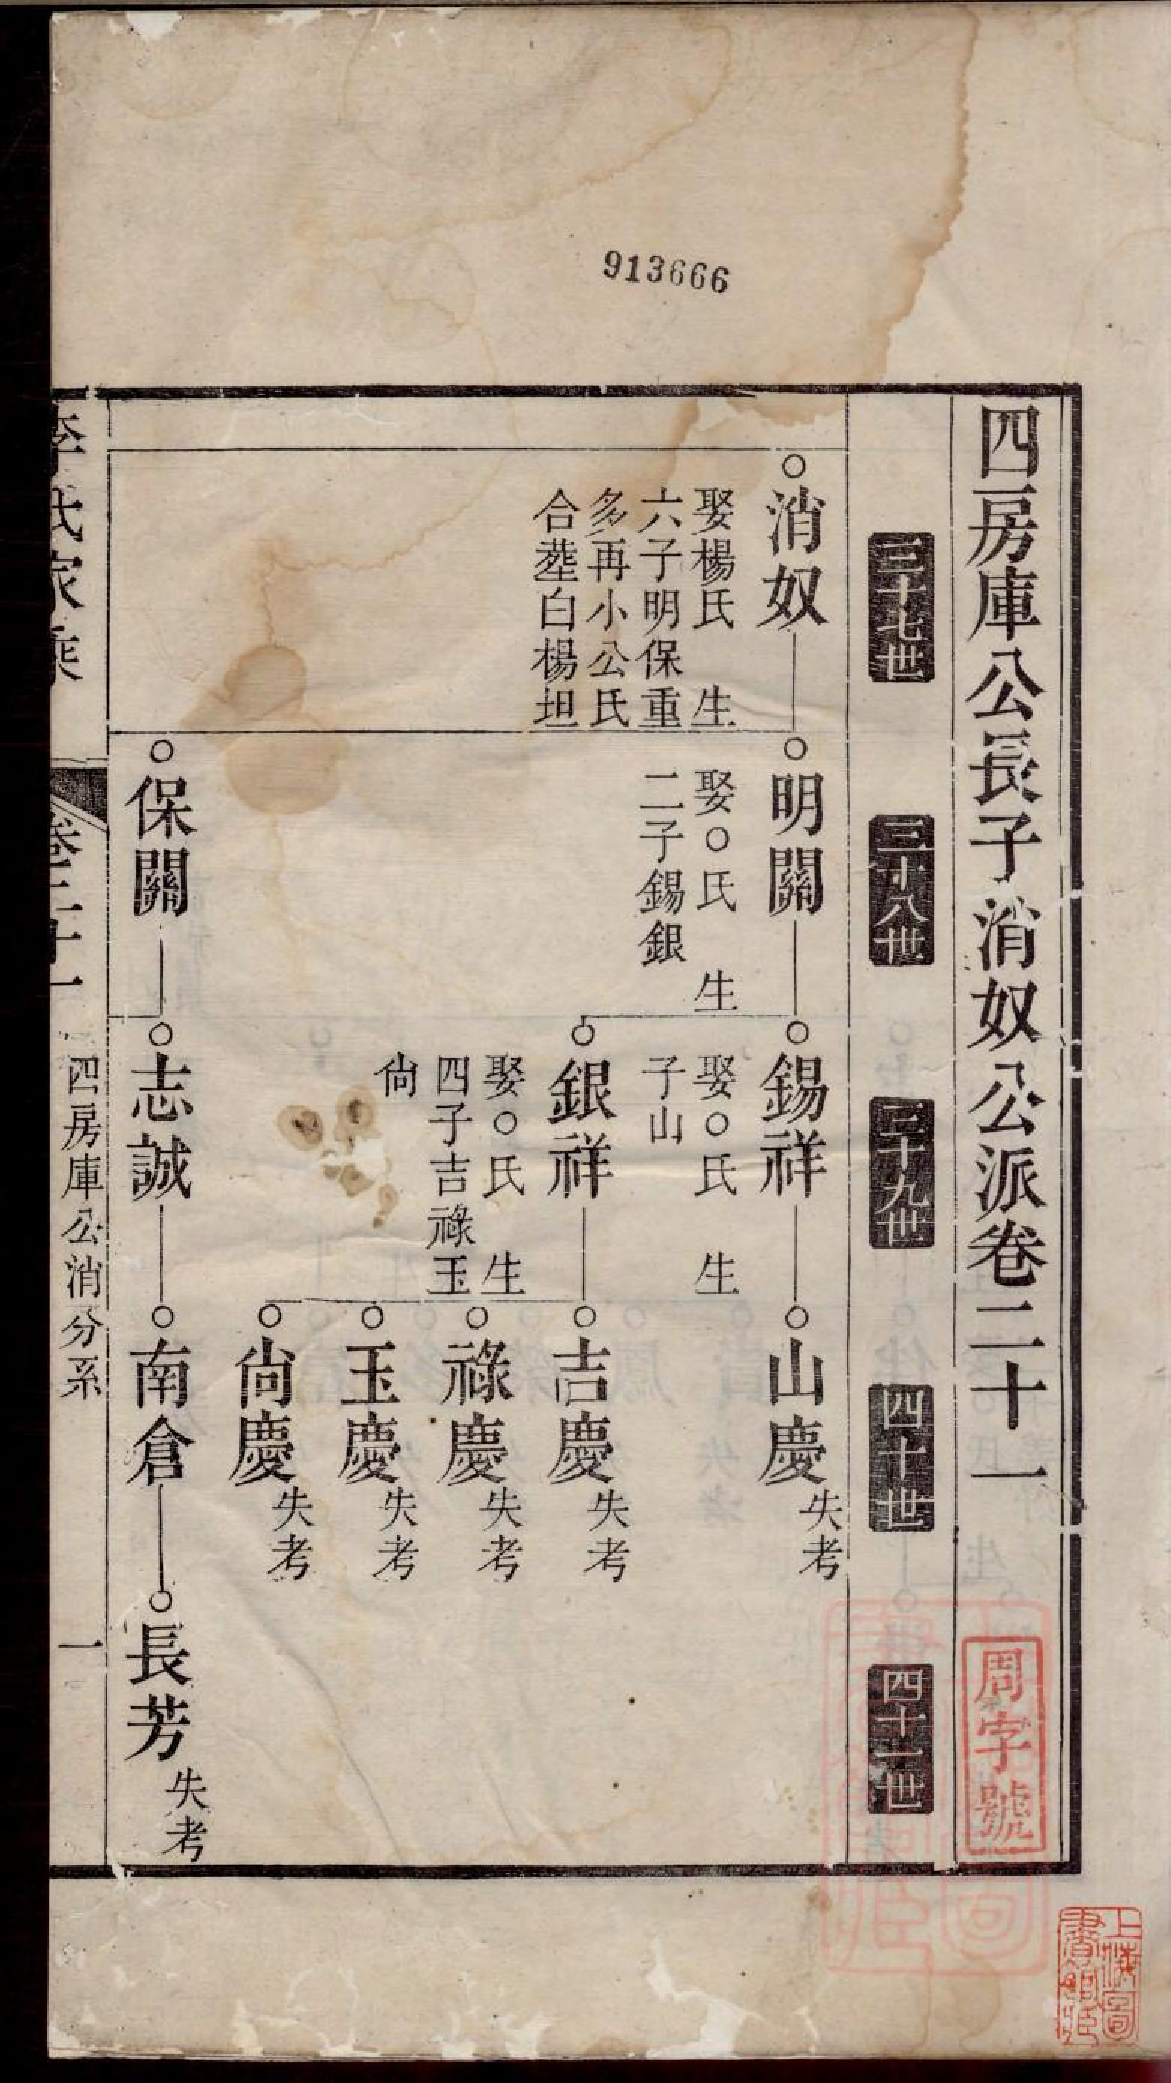 913666
四房庫公長子消奴公派卷二十一
周字號
三十七世
三十八世
三十九世
四十世
四十一世
消奴
娶楊氏 生
六子明保重
多再小公氏
合塟白楊坦
明關
娶○氏 生
二子錫銀
錫祥
娶○氏 生
子山
山慶
失考
銀祥
娶○氏 生
四子吉祿玉
尙
吉慶
失考
祿慶
失考
玉慶
失考
尙慶
失考
保關
志誠
南倉
長芳
失考
李氏家乘
卷二十一
四房庫公消分系
一
上海圖
書館藏